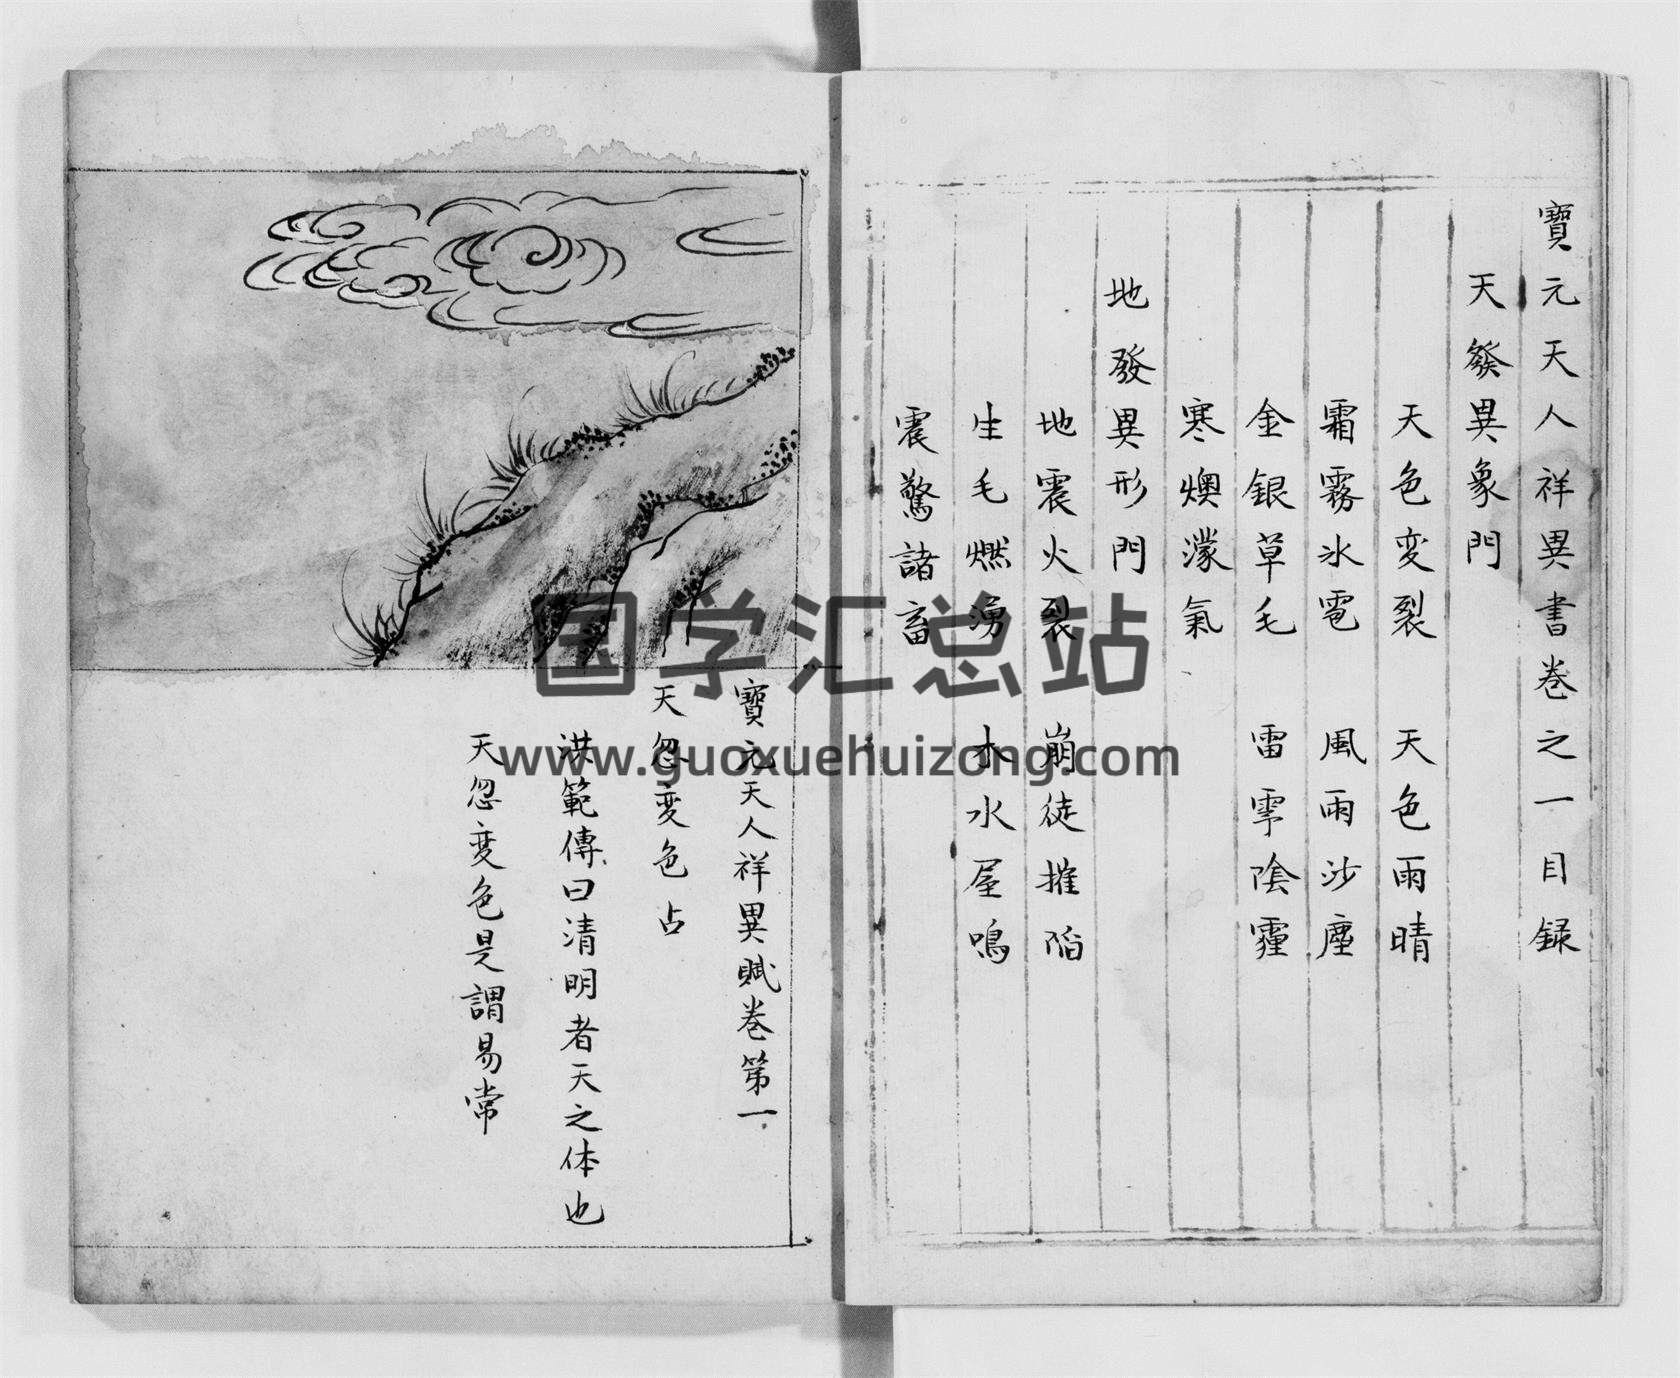 寶元天人祥異書卷之一目録
天發異象門
天色变裂 天色雨晴
霜霧氷雹 風雨沙塵
金銀草毛 雷雫陰霾
寒燠濛氣
地發異形門
地震火裂 崩徒摧陷
生毛燃湧 木水屋鳴
震驚諸畜
寶元天人祥異賦卷第一
天忽变色占
洪範傳曰清明者天之体也
天忽变色是謂易常
国学汇总站
www.guoxuehuizong.com